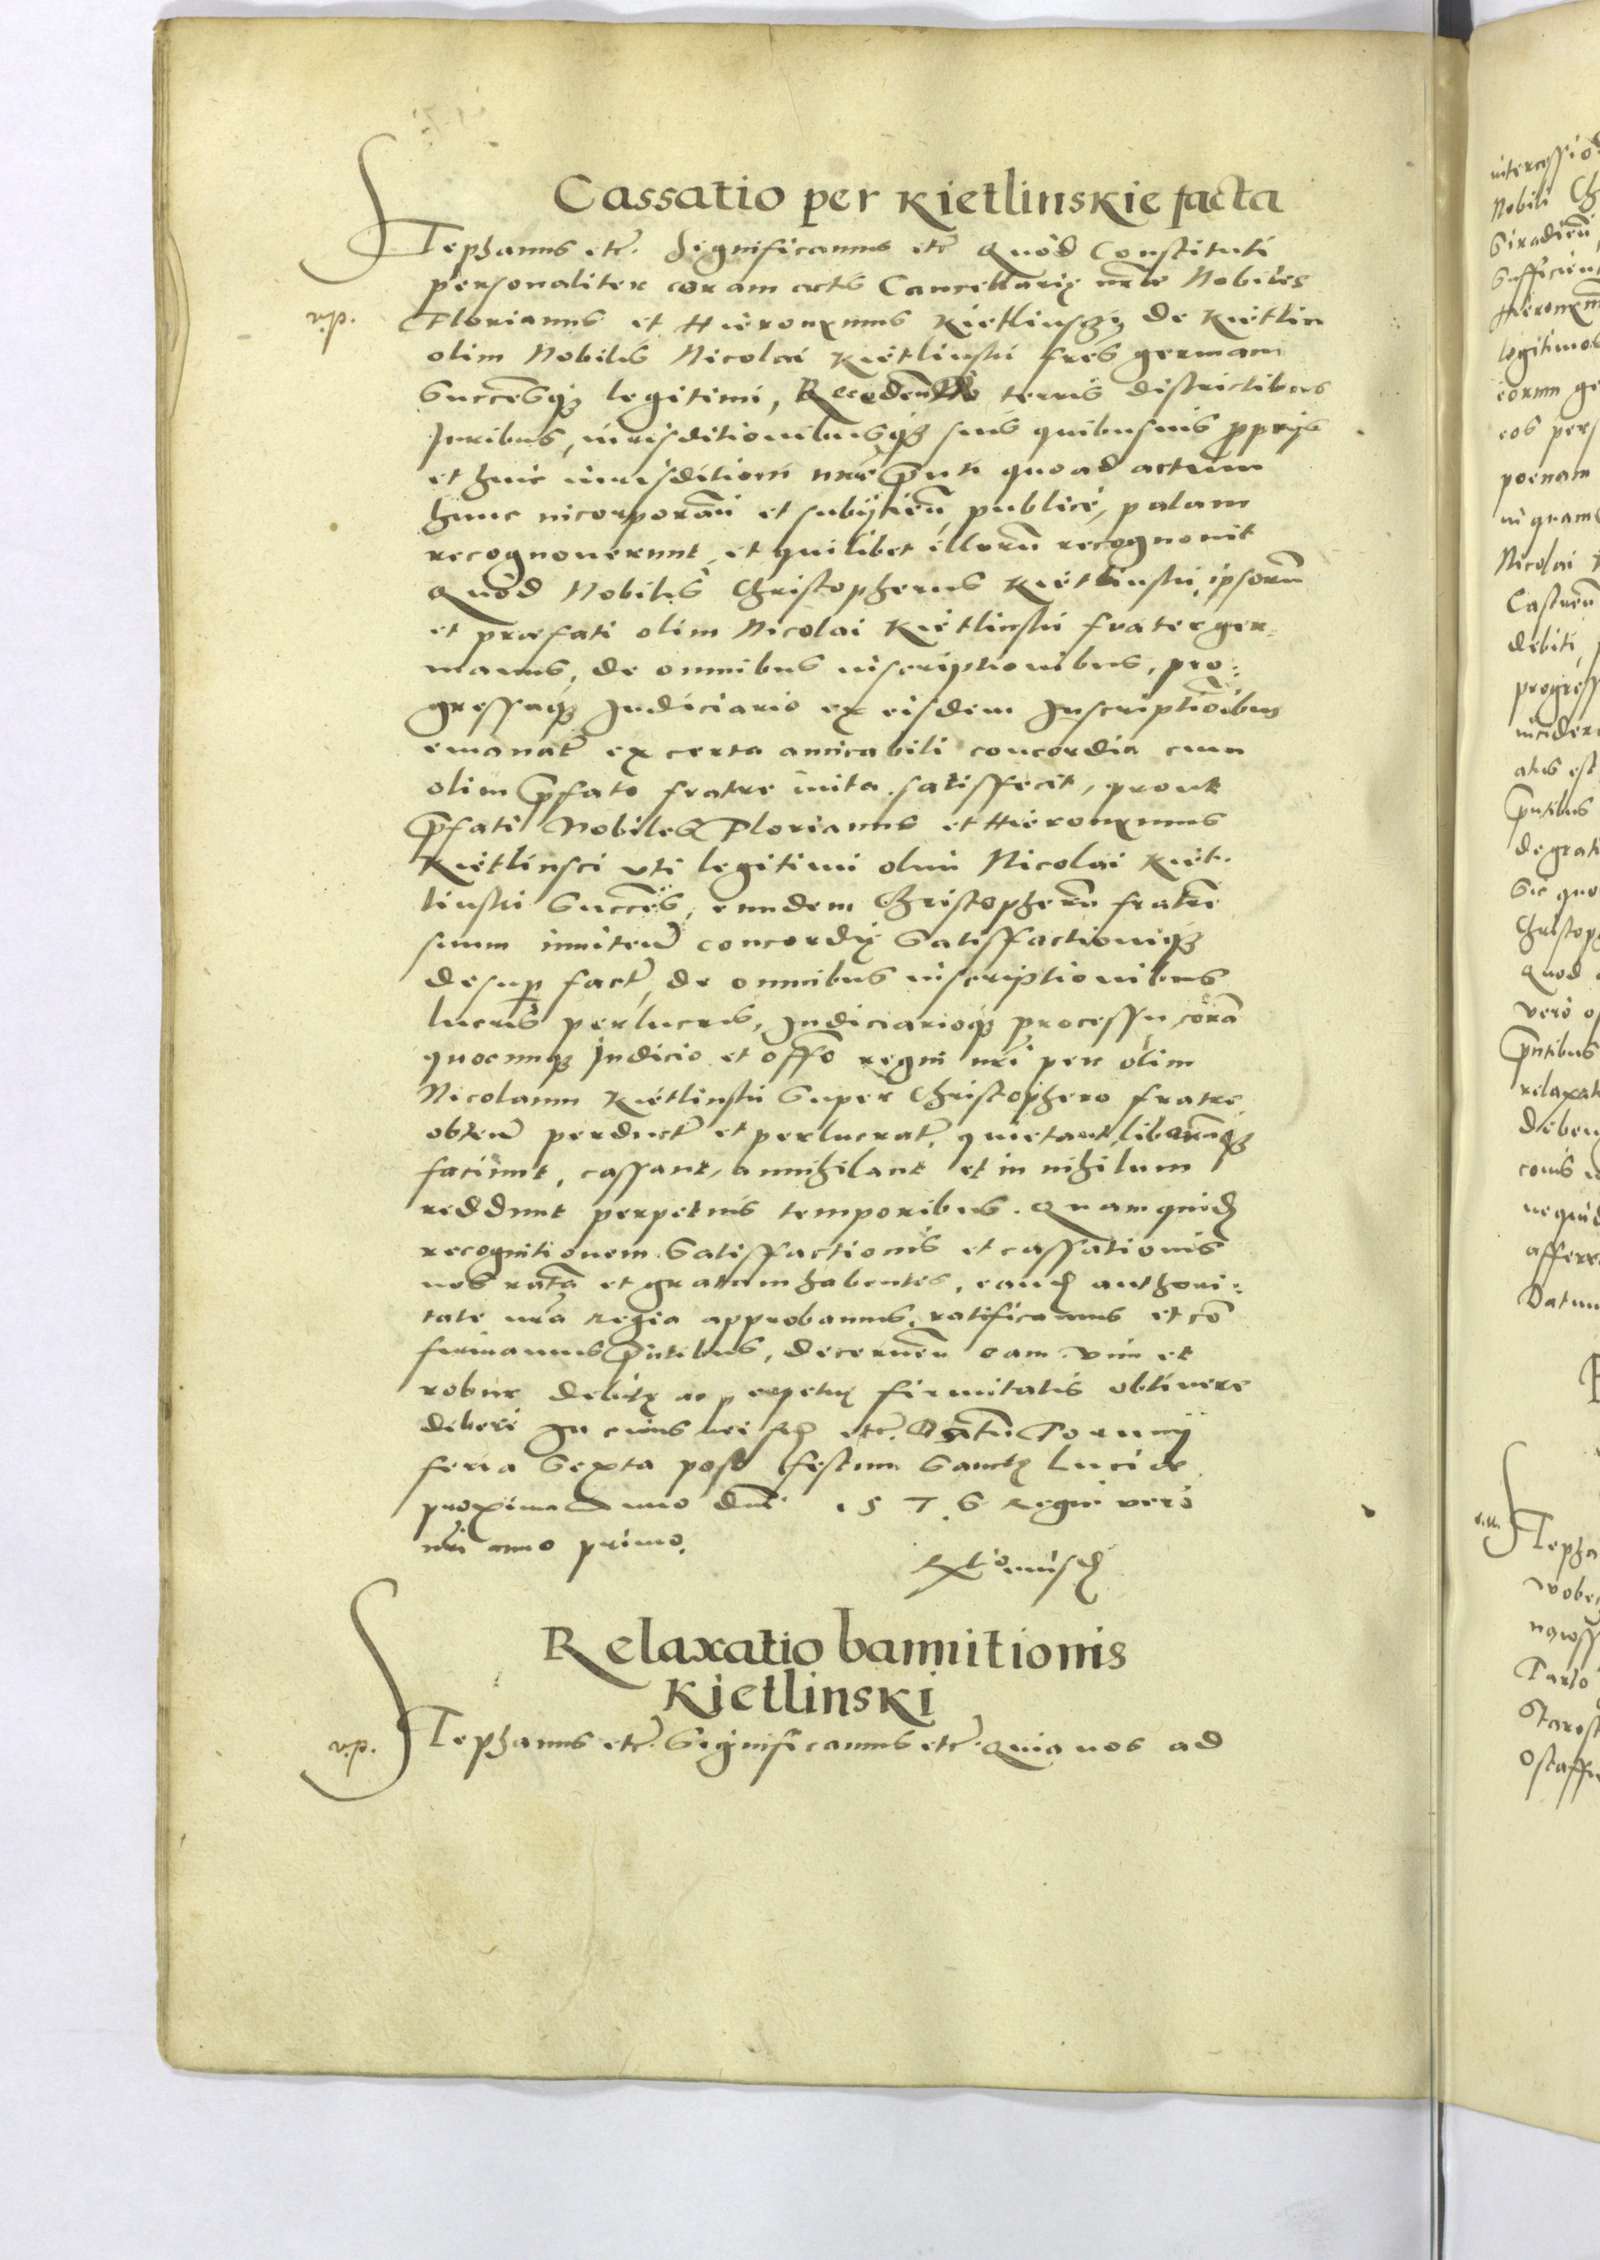 Cassatio per Kietlinskie facta
Stephanus etc. Significamus etc Quod Constituti
personaliter coram actis Cancellarię nrae Nobiles
Florianus et Hieronymus Kietlinsczy de Kietlin
vip.
olim Nobilis Nicolai Kietlinski fres germani
Succesqȝ legitimi, Receden terris districtibus
Juribus, iurisditionibusqȝ suis quibusuis proprijs
et huic iurisditioni nrae pnti quoad actum
hunc incorporan et subijcien, publice, palam
recognouerunt, et quilibet illorum recognouit
Quod Nobilis Christopherus Kietlinski, ipsorum
et præfati olim Nicolai Kietlinski frater ger:
manus, de omnibus inscriptionibus, pro:
gressuqȝ Judiciario ex eisdem Inscriptionibus
emanat ex certa amicabili concordia cum
olim pfato fratre inita satisfecit, prout
pfati Nobiles Florianus et Hieronymus
Kietlinsci vti legitimi olim Nicolai Kiet:
linski Succes, eundem Christopherum fratre
suum inniten concordię Satisfactioniqȝ
desup fact, de omnibus inscriptionibus
lucris perlucris, Judiciarioqȝ processu, cora
quocunqȝ Judicio et offo regni nri per olim
Nicolaum Kietlinski Super Christophero fratre
obten perduct et perlucrat, quietant, liberumqȝ
faciunt, cassant, annihilant et in nihilum
reddunt perpetuis temporibus. Quam quid
recognitionem Satisfactionis et cassationis
nos rata et gratam habentes, eand authori:
tate nra regia approbamus, ratificamus et co
firmamus pntibus, decernen eam vim et
robur debitę ac perpetuę firmitatis obtinere
debere In cuius rei fid etc. Datu Torunij
feria Sexta post festum Sanctę Luciae
proxima Anno Dni 1576 Regni vero
nri anno primo.
Relaxatio bannitionis
Kietlinski
vip.
Stephanus etc. Significamus etc. Quia nos ad